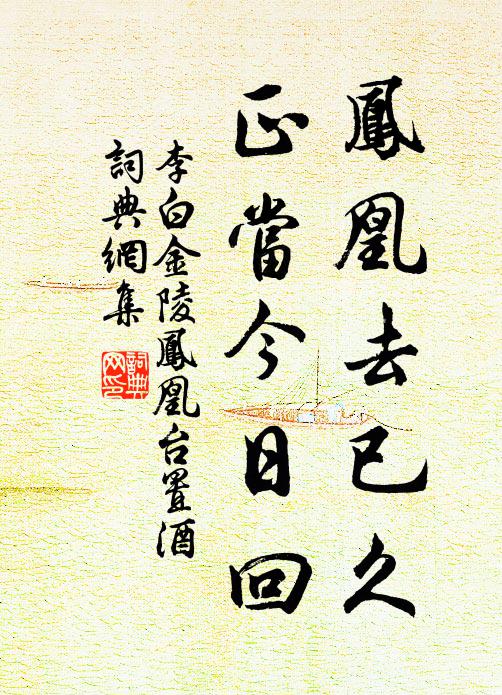 鳳凰去已久
正當今日回
李白金陵鳳凰台置酒
詞典網集
詞典
网印